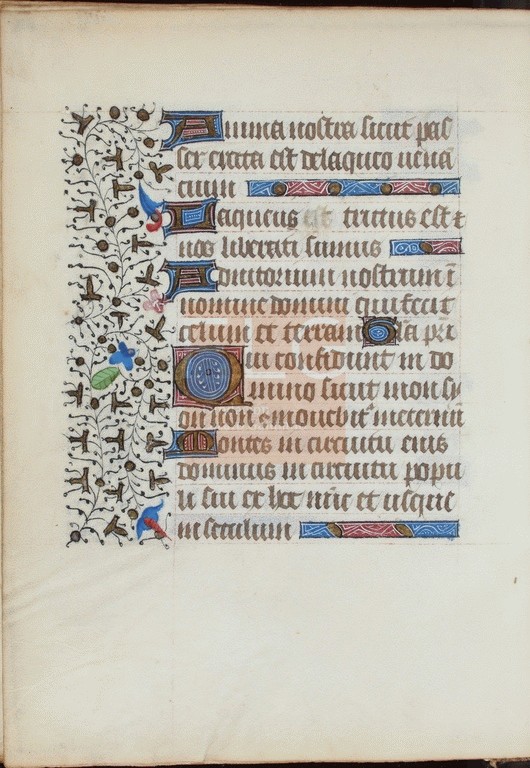 Anima nostra sicut pas
ser erepta est de laqueo uenā
cium
Laqueus est tritus est ⁊
nos liberati sumus
Adiutorium nostrum ī
nomine domini qui fecit
celum et terram Gła pri
Qui confidunt in do
mino sicut mon sy
on non ꝯmouebit᷑ in eternū
Montes in circuitu eius
dominus in circuitu popu
li sui ex hoc nūc et usque
in seculum